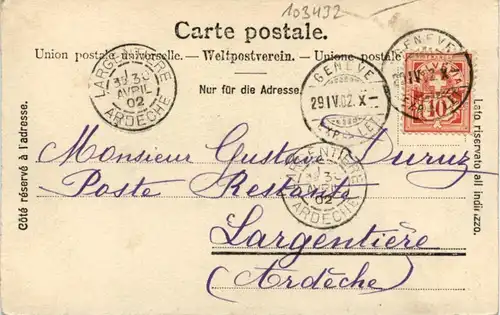 103432
Carte postale.
Union postale universelle. — Weltpostverein. — Unione postale
Nur für die Adresse.
Côté réservé à l'adresse.
Lato riservato all indirizzo.
LARGENTIÈRE
3E 30
AVRIL
02
ARDÈCHE
GENÈVE
29 IV. 02. X
EXP. LET.
GENÈVE
29 IV. 02. X
FRANCO
10
LARGENTIÈRE
02
ARDÈCHE
Monsieur Gustave Duruz
Poste Restante
Largentière
(Ardèche)